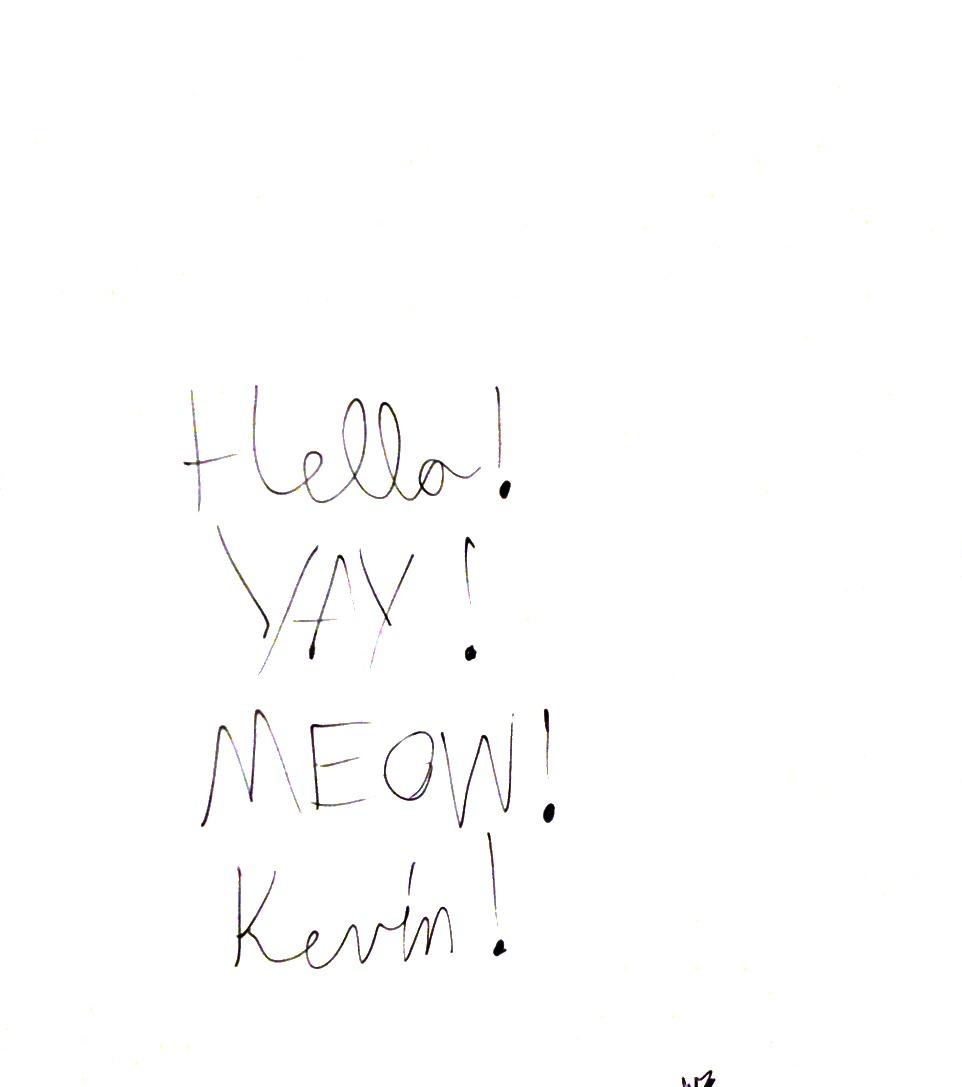 Hello!
YAY!
MEOW!
Kevin!